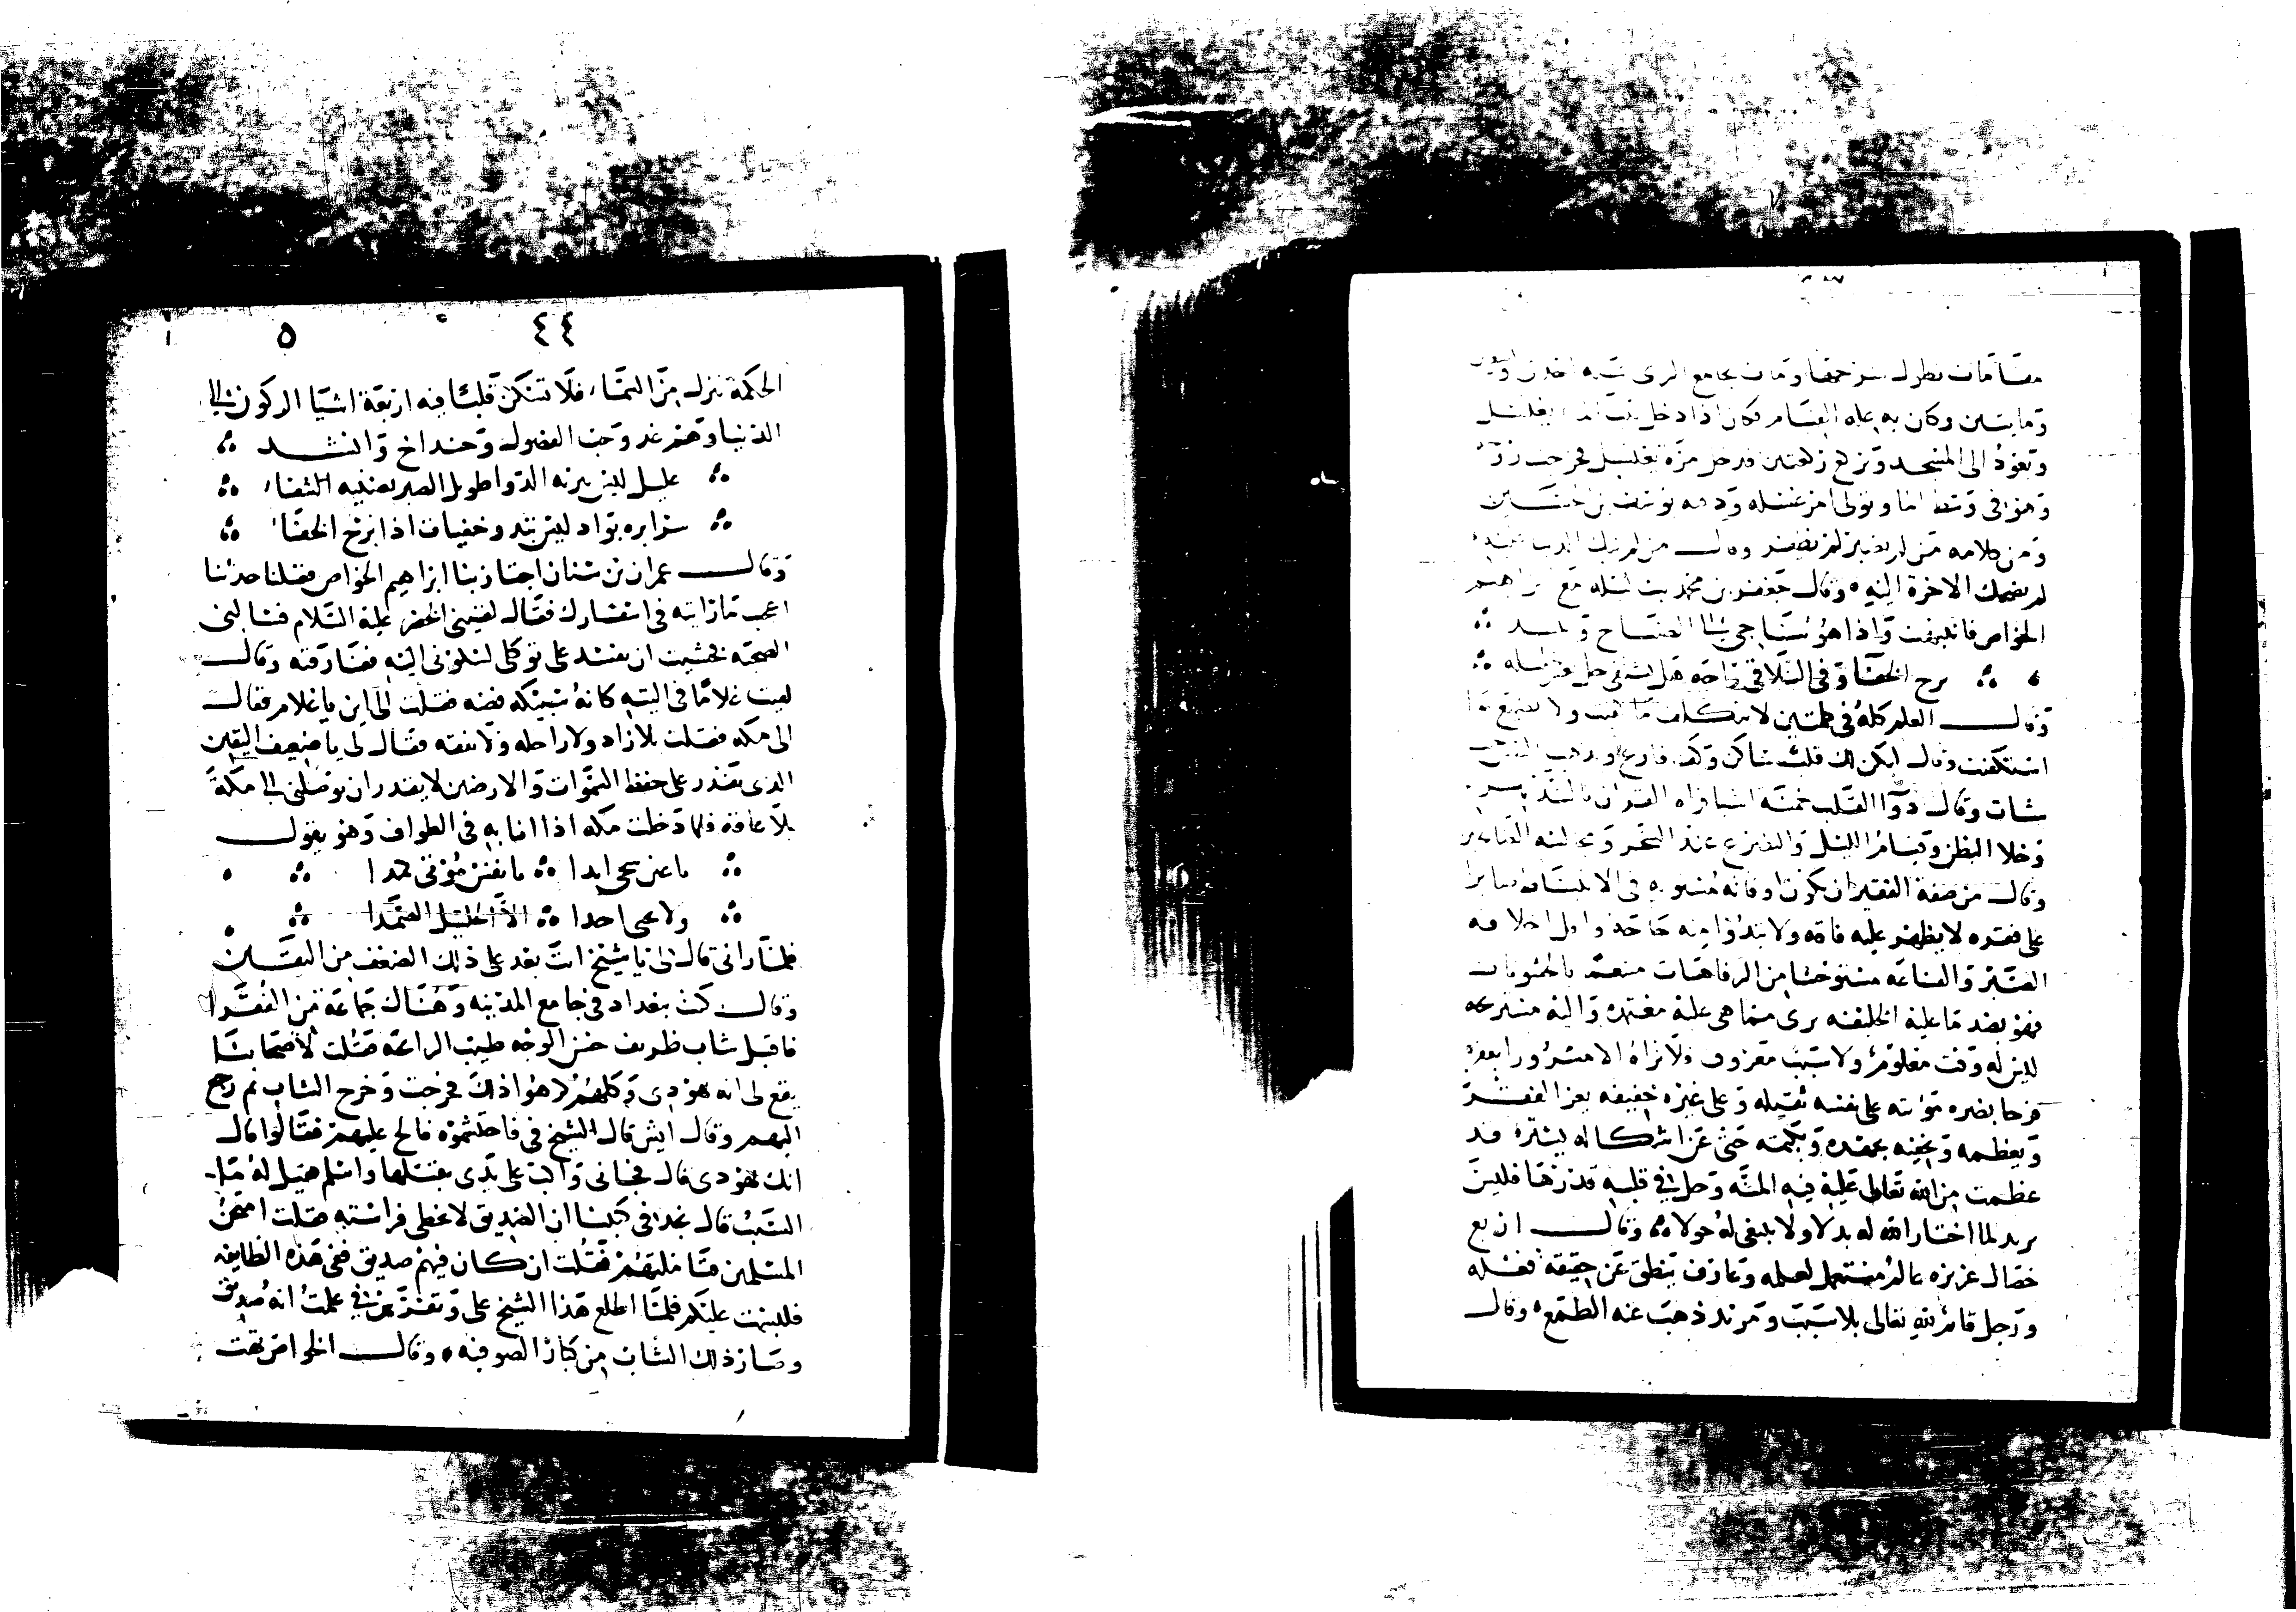 مقامات يطول شرحها ومات بجامع الرى سنه احدى وتسعين
ومايتين وكان به عله القيام فكان اذا دخل يغتسل
ويعود الى المسجد ويركع ركعتين فدخل مرة يغتسل فخرجت روحه
وهو فى وسط الما وتولى امر غسله ودفنه يوسف بن الحسين
ومن كلامه من لم يصبر لم يظفر وقال من لم تبك الدنيا عليه
لم تضحك الاخرة اليه وقال جعفر بن محمد بت ليله مع ابراهيم
الخواص فانتبهت واذا هو يناجى الى الصباح وينشد
برح الخفا وفى التلاقى راحة هل يشتفى خل بغير خليله
وقال العلم كله فى كلمتين لا تتكلف ما كفيت ولا تضيع ما
استكفيت وقال ليكن لك قلب ساكن وكف فارغ وتذهب النفس حيث
شات وقال دوا القلب خمسة اشيا قراه القران بالتدبر
وخلا البطن وقيام الليل والتضرع عند السحر ومجالسه الصالحين
وقال من صفة الفقير ان تكون اوقاته مستويه فى الانبساط صابرا
على فقره لا يظهر عليه فاقه ولا تبدو منه حاجه واول اخلاقه
الصبر والقناعه مستوحشا من الرفاهات متنعما بالخشونات
فهو بضد ما عليه الخليقه يرى ما هى عليه معتمده واليه مستريحه
ليس له وقت معلوم ولا سبب معروف فلا تراه الا مسرورا بفقره
فرحا بضره مؤنته على نفسه ثقيله وعلى غيره خفيفه يعز الفقر
ويعظمه ويخفيه بجهده ويكتمه حتى عن اشكاله يستره قد
عظمت من الله تعالى عليه فيه المنه وجل فى قلبه قدرها فليس
يريد لما اختار الله له بدلا ولا يبغى له حولا وقال اربع
خصال عزيزه عالم مستعمل لعلمه وعارف ينطق عن حقيقة فعله
ورجل قائم لله تعالى بلا سبب ومريد ذهب عنه الطمع وقال
٤٤ ٥
الحكمة تنزل من السماء فلا تسكن قلبا فيه اربعة اشيا الركون الى
الدنيا وهم غد وحب الفضول وحسد اخ وانشد
عليل ليس يبرئه الدوا طويل الصبر يضنيه الشفاء
سرايره بواد ليس تبدو خفيات اذا برح الخفاء
وقال عمران بن سنان اجتاز بنا ابراهيم الخواص فقلنا حدثنا
اعجب ما رايته فى اسفارك فقال لقينى الخضر عليه السلام فسالنى
الصحبه فخشيت ان يفسد على توكلى لسكونى اليه ففارقته وقال
لقيت غلاما فى التيه كانه سبيكه فضه فقلت الى اين يا غلام فقال
الى مكه فقلت بلا زاد ولا راحله ولا نفقه فقال لى يا ضعيف اليقين
الذى يقدر على حفظ السموات والارضين لا يقدر ان يوصلنى الى مكة
بلا علاقه فلما دخلت مكه اذا انا به فى الطواف وهو يقول
يا عين سحى ابدا يا نفس موتى كمدا
ولا تحبى احدا الا الجليل الصمدا
فلما رانى قال لى يا شيخ انت بعد على ذلك الضعف من اليقين
وقال كنت ببغداد فى جامع المدينه وهناك جماعة من الفقرا
فاقبل شاب ظريف حسن الوجه طيب الرائحه فقلت لاصحابنا
يقع لى انه يهودى وكلهم كرهوا ذلك فخرجت وخرج الشاب ثم رجع
اليهم وقال ايش قال الشيخ فى فاحتشموه فالح عليهم فقالوا قال
انك يهودى قال فجانى واكب على يدى يقبلها واسلم فقيل له ما
السبب قال نجد فى كتبنا ان الصديق لا تخطى فراسته فقلت امتحن
المسلمين فتاملتهم فقلت ان كان فيهم صديق ففى هذه الطايفه
فلبست عليكم فلما اطلع هذا الشيخ على وتفرس فى علمت انه صديق
وصار ذلك الشاب من كبار الصوفيه وقال الخواص تهت